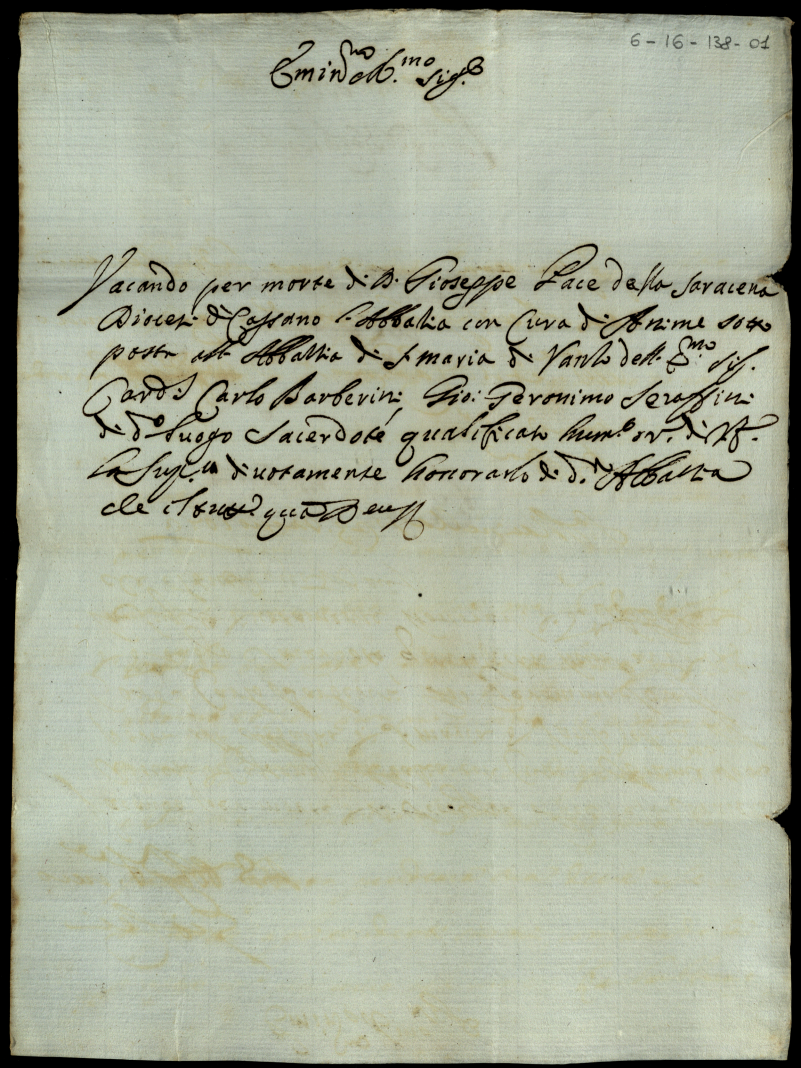 6-16-138-01
Emin.mo e R.mo Sig.re
Vacando per morte di D. Gioseppe Pace della Saracena
Diocesi di Cassano l'Abbatia con Cura di Anime sotto
posta all'Abbatia di S. Maria di dell'E.mo Sig.
Card.l Carlo Barberini, Gio: Geronimo Seraffini
di d.o luogo Sacerdote qualificato hum.e or. di V. E.
la sup.ca divotamente honorarlo di d.a Abbatia
che il tutto qua Deus